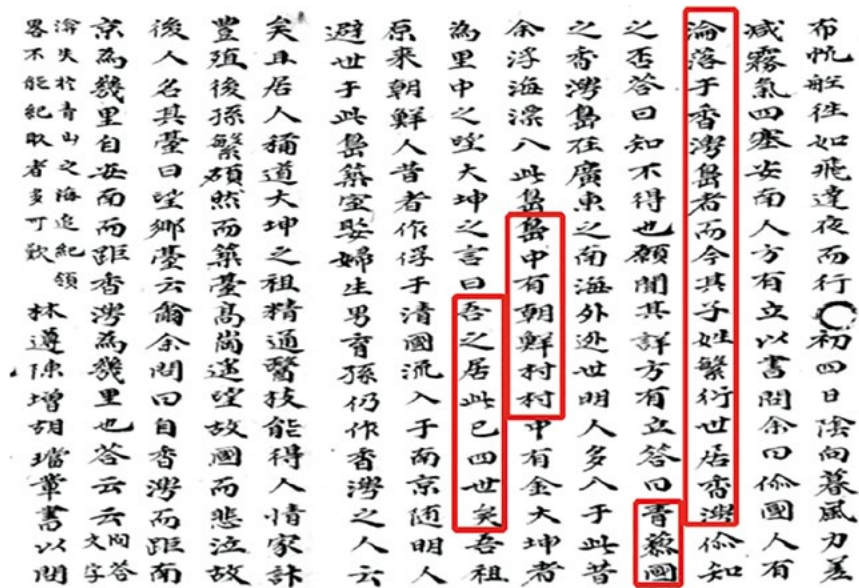 布帆般往如飛達夜而行○初四日陰向暮風力差
減霧氣四塞安南人方有立以書問余曰倆國人有
淪落于香澳島者而今其子姓繁衍世居香澳倆知
之否答曰知不得也願聞其詳方有立答曰青藜國
之香澳島在廣東之南海外迯世明人多入于此昔
余浮海漂入此島島中有朝鮮村村中有金大坤者
為里中之望大坤之言曰吾之居此已四世矣吾祖
原来朝鮮人昔者作俘于清國流入于南京随明人
避世于此島築室娶婦生男育孫仍作香澳之人云
矣且居人稱道大坤之祖精通醫技能得人情家計
豐殖後孫繁碩然而築臺高崗遙望故國而悲泣故
後人名其臺曰望鄉臺云爾余問曰自香澳而距南
京為幾里自安南而距香澳為幾里也答云云問答文字
淪失於青山之海追紀領畧不能紀取者多可歎林遵陳增胡璫輩書以問